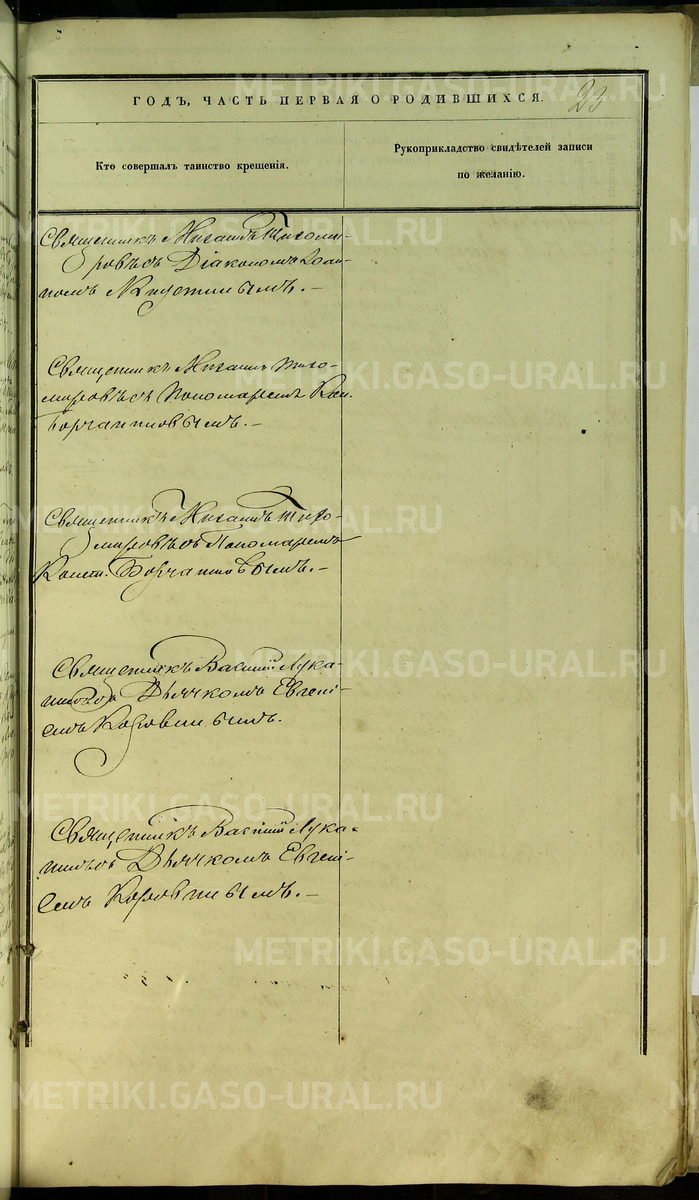 ГОДЪ, ЧАСТЬ ПЕРВАЯ О РОДИВШИХСЯ.
23
Кто совершалъ таинство крещенія.
Рукоприкладство свидѣтелей записи
по желанію.
Священникъ Михаилъ Тихоми-
ровъ съ Діакономъ Іоан-
номъ
Священникъ Михаилъ Тихо-
мировъ съ Пономаремъ Кон.
Борчаниновымъ.
Священникъ Михаилъ Тихо-
мировъ съ Пономаремъ
Конст. Борчаниновымъ.
Священникъ Василій Лука-
нинъ съ Дьячкомъ Евгені-
емъ Коровинымъ.
Священникъ Василій Лука-
нинъ съ Дьячкомъ Евгені-
емъ Коровинымъ.
METRIKI.GASO-URAL.RU